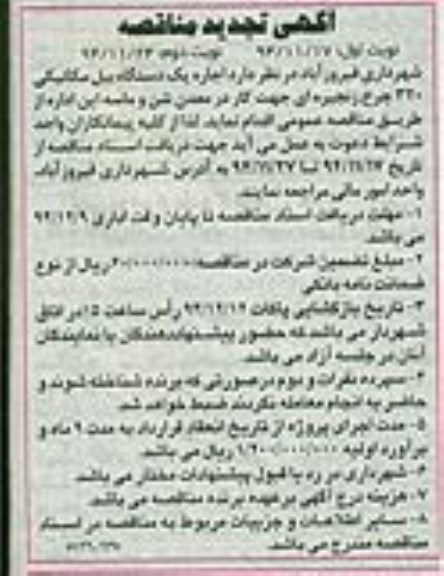 آگهی تجدید مناقصه
نوبت اول: ۹۲/۱۱/۱۷ نوبت دوم: ۹۲/۱۱/۲۳
شهرداری فیروزآباد در نظر دارد اجاره یک دستگاه بیل مکانیکی
۳۲۰ چرخ زنجیره ای جهت کار در معدن شن و ماسه این اداره از
طریق مناقصه عمومی اقدام نماید. لذا از کلیه پیمانکاران واجد
شرایط دعوت به عمل می آید جهت دریافت اسناد مناقصه از
تاریخ تا به آدرس شهرداری فیروزآباد
واحد امور مالی مراجعه نمایند.
۱- مهلت دریافت اسناد مناقصه تا پایان وقت اداری ۹۲/۱۲/۹
می باشد.
۲- مبلغ تضمین شرکت در مناقصه ریال از نوع
ضمانت نامه بانکی
۳- تاریخ بازگشایی پاکات ۹۲/۱۲/۱۲ رأس ساعت ۱۵ در اتاق
شهردار می باشد که حضور پیشنهاددهندگان یا نمایندگان
آنان در جلسه آزاد می باشد.
۴- سپرده نفرات و دوم درصورتی که برنده شناخته شوند و
حاضر به انجام معامله نگردند ضبط خواهد شد.
۵- مدت اجرای پروژه از تاریخ انعقاد قرارداد به مدت ۹ ماه و
برآورد اولیه ۱/۲۰۰/۰۰۰/۰۰۰ ریال می باشد.
۶- شهرداری در رد یا قبول پیشنهادات مختار می باشد.
۷- هزینه درج آگهی برعهده برنده مناقصه می باشد.
۸- سایر اطلاعات و جزییات مربوط به مناقصه در اسناد
مناقصه مندرج می باشد.